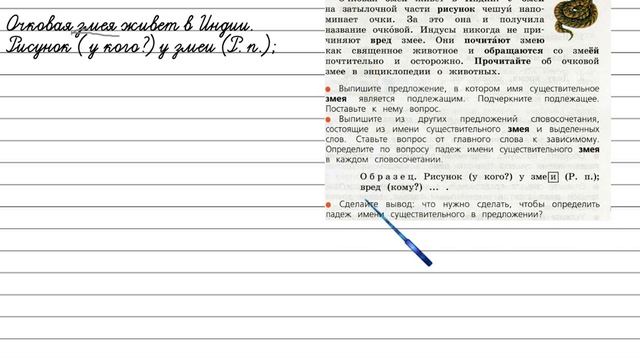 Очковая змея живет в Индии.
Рисунок (у кого?) у змеи (Р. п.);
на затылочной части рисунок чешуй напо-
минает очки. За это она и получила
название очко́вой. Индусы никогда не при-
чиняют вред змее. Они почита́ют змею
как священное животное и обращаются со змеёй
почтительно и осторожно. Прочитайте об очковой
змее в энциклопедии о животных.
Выпишите предложение, в котором имя существительное
змея является подлежащим. Подчеркните подлежащее.
Поставьте к нему вопрос.
Выпишите из других предложений словосочетания,
состоящие из имени существительного змея и выделенных
слов. Ставьте вопрос от главного слова к зависимому.
Определите по вопросу падеж имени существительного змея
в каждом словосочетании.
Образец. Рисунок (у кого?) у змеи (Р. п.);
вред (кому?) ... .
Сделайте вывод: что нужно сделать, чтобы определить
падеж имени существительного в предложении?